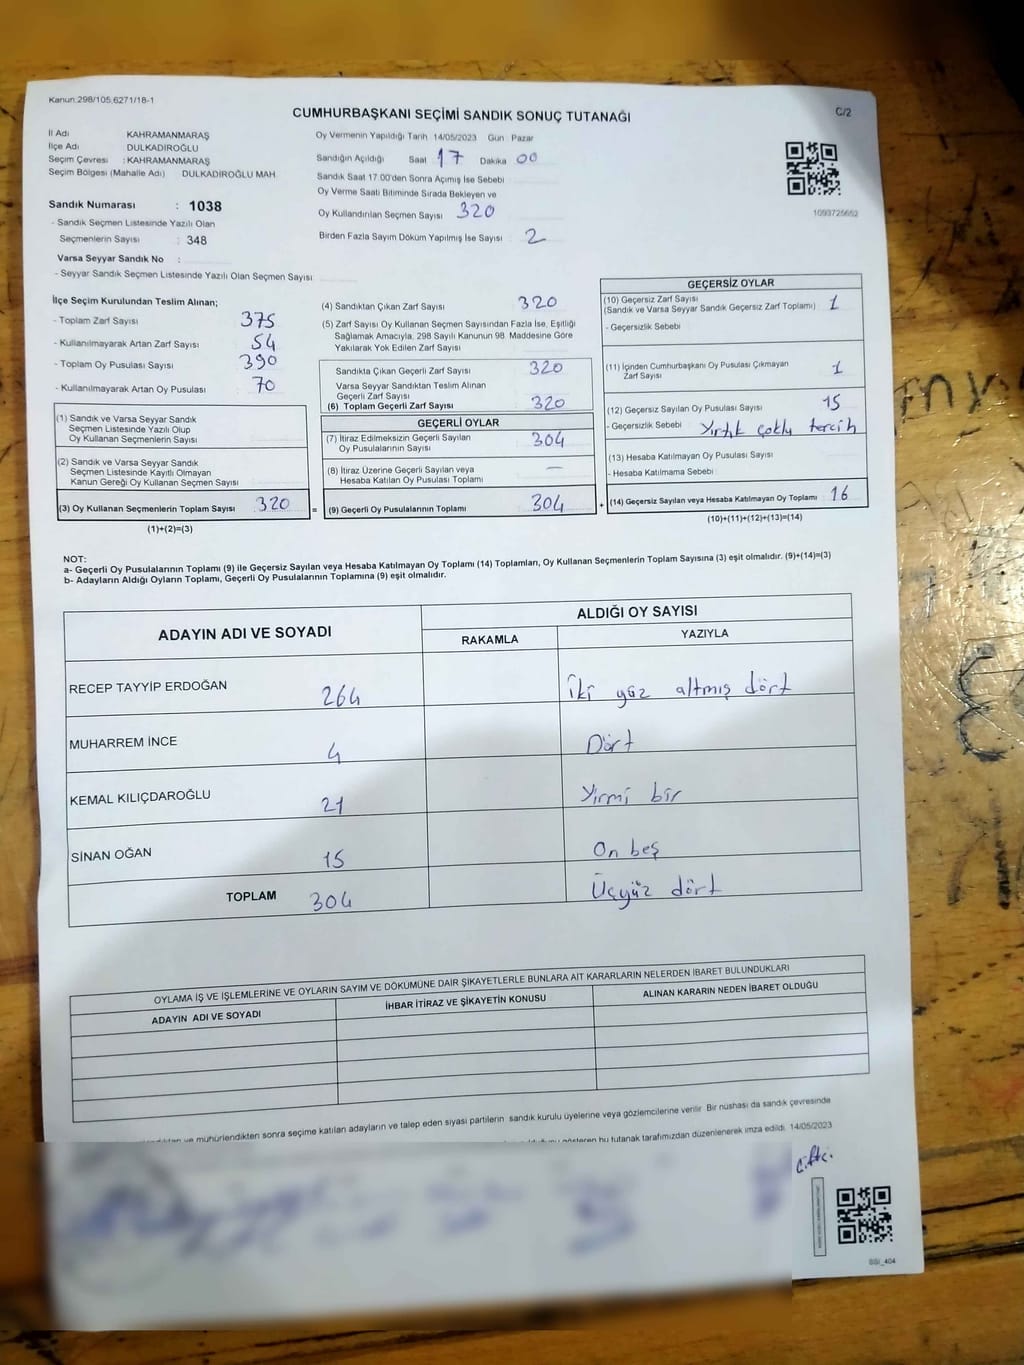 Kanun:298/105,6271/18-1
CUMHURBAŞKANI SEÇİMİ SANDIK SONUÇ TUTANAĞI
C/2
İl Adı KAHRAMANMARAŞ
İlçe Adı DULKADİROĞLU
Seçim Çevresi : KAHRAMANMARAŞ
Seçim Bölgesi (Mahalle Adı) DULKADİROĞLU MAH.
Sandık Numarası : 1038
- Sandık Seçmen Listesinde Yazılı Olan
Seçmenlerin Sayısı : 348
Varsa Seyyar Sandık No :
- Seyyar Sandık Seçmen Listesinde Yazılı Olan Seçmen Sayısı
Oy Vermenin Yapıldığı Tarih 14/05/2023 Gün Pazar
Sandığın Açıldığı Saat 17 Dakika 00
Sandık Saat 17.00'den Sonra Açımış İse Sebebi
Oy Verme Saati Bitiminde Sırada Bekleyen ve
Oy Kullandırılan Seçmen Sayısı 320
Birden Fazla Sayım Döküm Yapılmış İse Sayısı : 2
1093725652
İlçe Seçim Kurulundan Teslim Alınan;
- Toplam Zarf Sayısı 375
- Kullanılmayarak Artan Zarf Sayısı 54
- Toplam Oy Pusulası Sayısı 390
- Kullanılmayarak Artan Oy Pusulası 70
(1) Sandık ve Varsa Seyyar Sandık
Seçmen Listesinde Yazılı Olup
Oy Kullanan Seçmenlerin Sayısı
(2) Sandık ve Varsa Seyyar Sandık
Seçmen Listesinde Kayıtlı Olmayan
Kanun Gereği Oy Kullanan Seçmen Sayısı
(3) Oy Kullanan Seçmenlerin Toplam Sayısı 320 =
(1)+(2)=(3)
(4) Sandıktan Çıkan Zarf Sayısı 320
(5) Zarf Sayısı Oy Kullanan Seçmen Sayısından Fazla İse, Eşitliği
Sağlamak Amacıyla, 298 Sayılı Kanunun 98. Maddesine Göre
Yakılarak Yok Edilen Zarf Sayısı
Sandıkta Çıkan Geçerli Zarf Sayısı 320
Varsa Seyyar Sandıktan Teslim Alınan
Geçerli Zarf Sayısı
(6) Toplam Geçerli Zarf Sayısı 320
GEÇERLİ OYLAR
(7) İtiraz Edilmeksizin Geçerli Sayılan
Oy Pusulalarının Sayısı 304
(8) İtiraz Üzerine Geçerli Sayılan veya
Hesaba Katılan Oy Pusulası Toplamı —
(9) Geçerli Oy Pusulalarının Toplamı 304 +
GEÇERSİZ OYLAR
(10) Geçersiz Zarf Sayısı
(Sandık ve Varsa Seyyar Sandık Geçersiz Zarf Toplamı) 1
- Geçersizlik Sebebi
(11) İçinden Cumhurbaşkanı Oy Pusulası Çıkmayan
Zarf Sayısı 1
(12) Geçersiz Sayılan Oy Pusulası Sayısı 15
- Geçersizlik Sebebi Yırtık çoklu tercih
(13) Hesaba Katılmayan Oy Pusulası Sayısı
- Hesaba Katılmama Sebebi
(14) Geçersiz Sayılan veya Hesaba Katılmayan Oy Toplamı 16
(10)+(11)+(12)+(13)=(14)
NOT:
a- Geçerli Oy Pusulalarının Toplamı (9) ile Geçersiz Sayılan veya Hesaba Katılmayan Oy Toplamı (14) Toplamları, Oy Kullanan Seçmenlerin Toplam Sayısına (3) eşit olmalıdır. (9)+(14)=(3)
b- Adayların Aldığı Oyların Toplamı, Geçerli Oy Pusulalarının Toplamına (9) eşit olmalıdır.
ADAYIN ADI VE SOYADI ALDIĞI OY SAYISI
RAKAMLA YAZIYLA
RECEP TAYYİP ERDOĞAN 264 İki yüz altmış dört
MUHARREM İNCE 4 Dört
KEMAL KILIÇDAROĞLU 21 Yirmi bir
SİNAN OĞAN 15 On beş
TOPLAM 304 Üçyüz dört
OYLAMA İŞ VE İŞLEMLERİNE VE OYLARIN SAYIM VE DÖKÜMÜNE DAİR ŞİKAYETLERLE BUNLARA AİT KARARLARIN NELERDEN İBARET BULUNDUKLARI
ADAYIN ADI VE SOYADI İHBAR İTİRAZ VE ŞİKAYETİN KONUSU ALINAN KARARIN NEDEN İBARET OLDUĞU
ve mühürlendikten sonra seçime katılan adayların ve talep eden siyasi partilerin sandık kurulu üyelerine veya gözlemcilerine verilir. Bir nüshası da sandık çevresinde
gösteren bu tutanak tarafımızdan düzenlenerek imza edildi. 14/05/2023
SSI_404